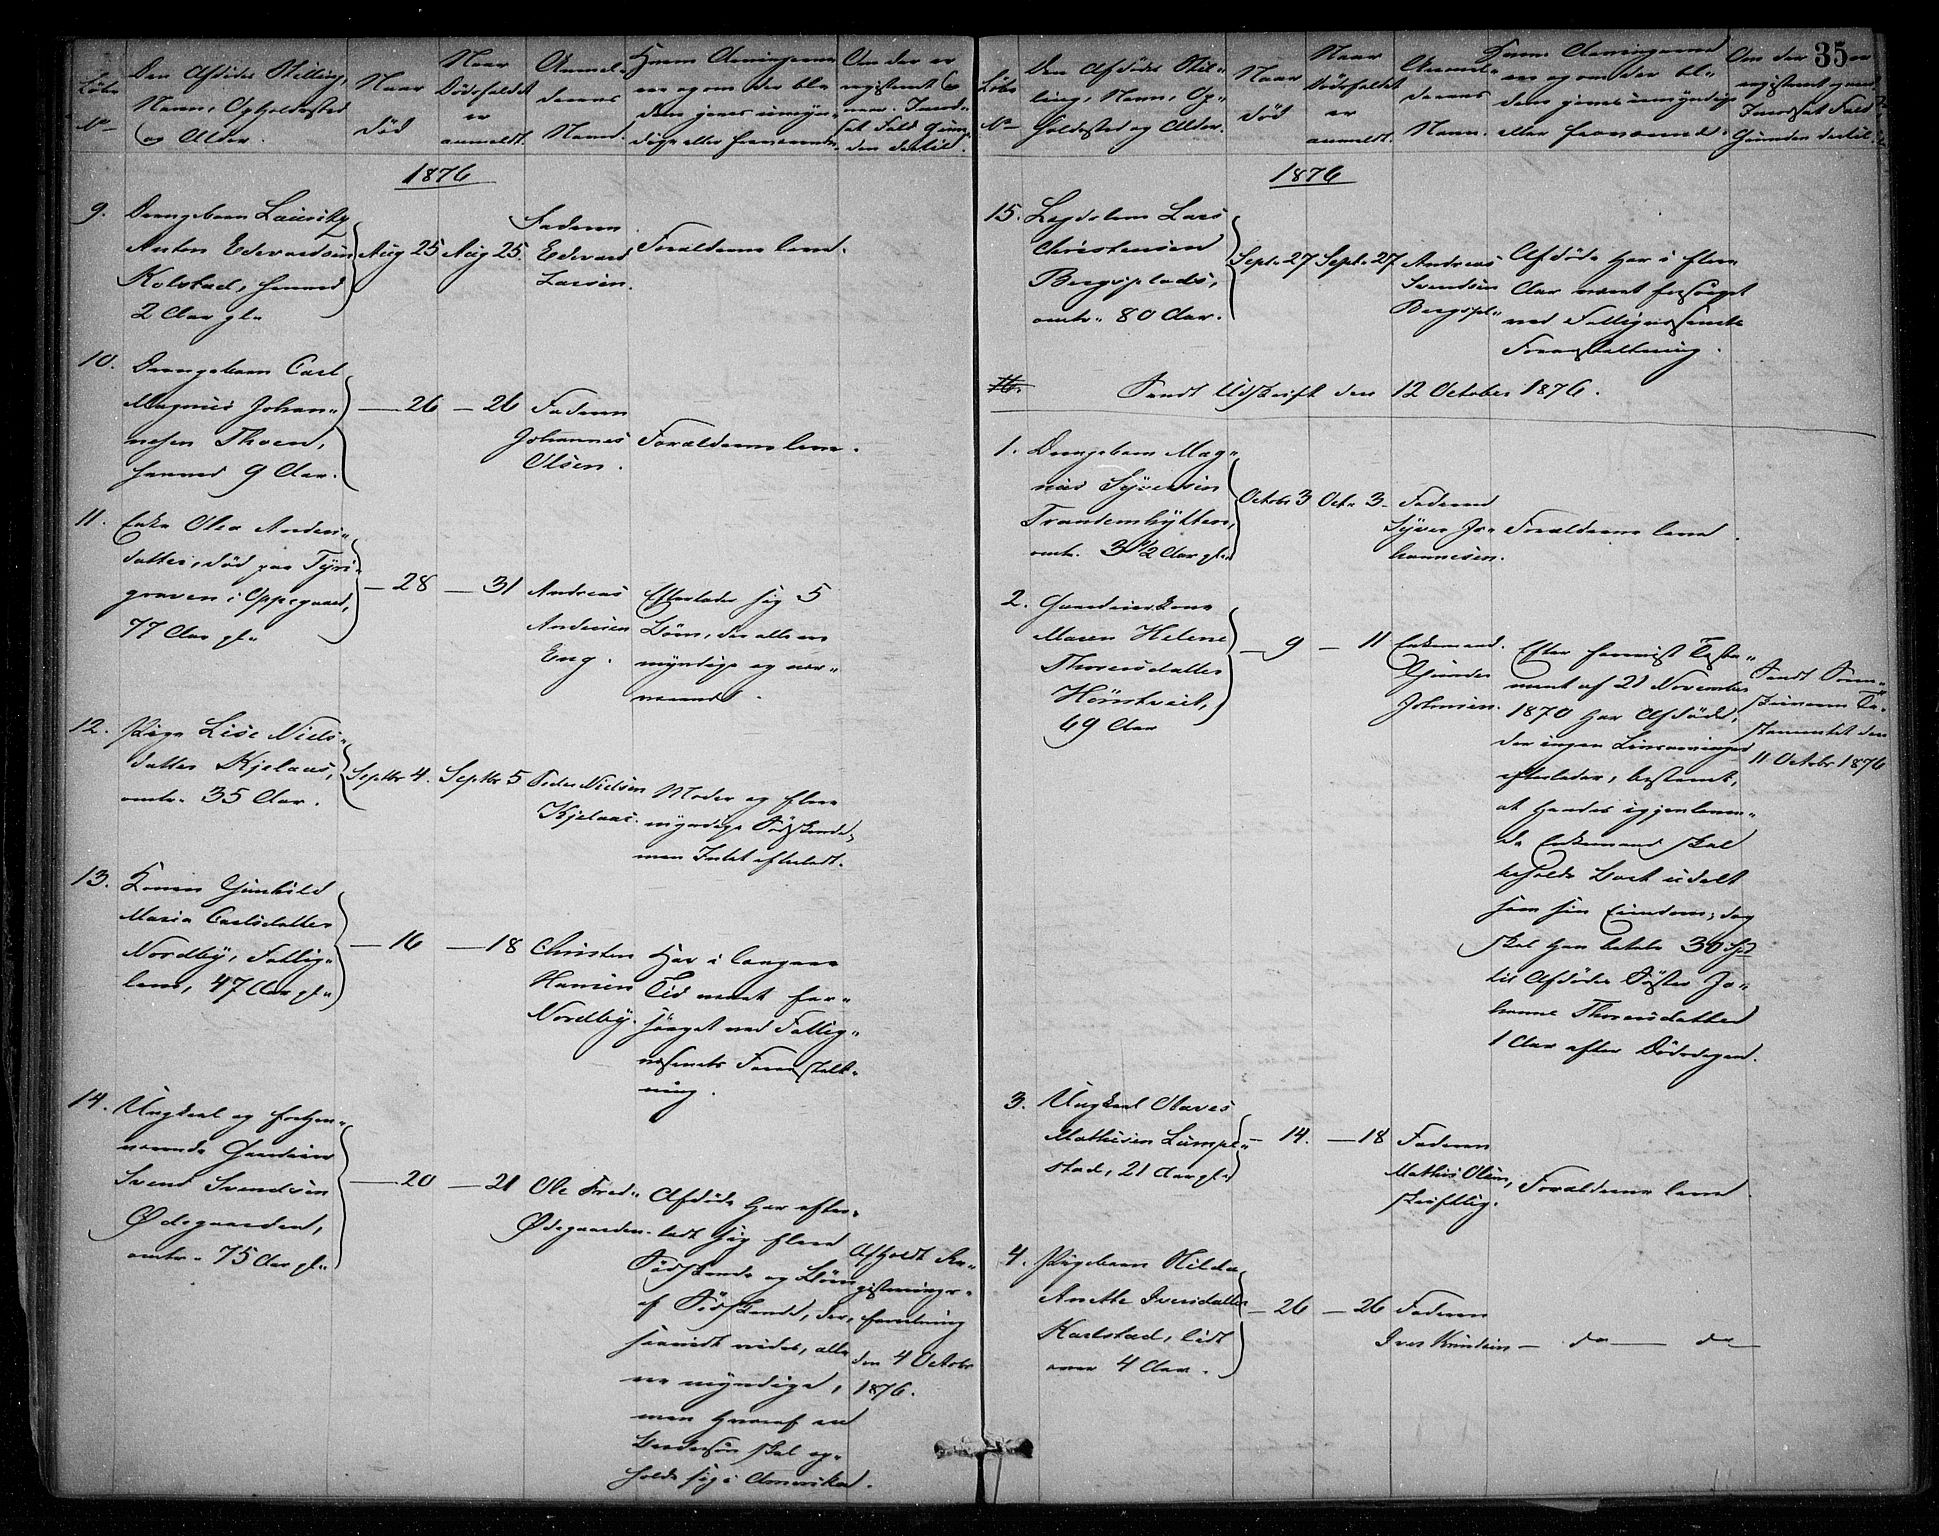 35
Løbe
No
Den Afdødes Stilling,
Navn, Opholdssted
og Alder.
Naar
død
Naar
Dødsfaldet
er
anmeldt.
Anmel-
derens
Navn
Hvem Arvingerne
ere og om der blandt
dem gives umyn-
dige eller fraværende.
Om der er
registreret
Fald Grun-
den dertil.
1876
9. Drengebarn Lauritz
Anton Edvardsen
Kolstad, henved
2 Aar gl.
Aug 25 Aug 25.
Faderen
Edvard
Larsen.
Forældrene leve.
10. Drengebarn Carl
Magnus Johan-
nesen Thoen,
henved 9 Aar.
— 26 — 26
Faderen
Johannes
Olsen.
Forældrene leve.
11. Enke Olea Anders-
datter, død paa Tyri-
graven i Oppegaard,
77 Aar gl.
— 28 — 31
Andreas
Andersen
Eng.
Efterlader sig 5
Børn, der alle ere
myndige og nær-
værende.
12. Pige Lise Niels-
datter Kjelaas,
omtr. 35 Aar.
Septbr 4. Septbr 5
Peder Nielsen
Kjelaas.
Moder og flere
myndige Sødskende,
men Intet efterladt.
13. Konen Gunhild
Maria Carlsdatter
Nordby, Fattig-
lem, 47 Aar gl.
— 16 — 18
Christen
Hansen
Nordby.
Har i længere
Tid været for-
sørget ved Fattig-
væsenets Foranstalt-
ning.
14. Ungkarl og forhen-
værende Gaardeier
Svend Svendsen
Ødegaarden,
omtr. 75 Aar gl.
— 20 — 21
Ole Fred.
Ødegaarden.
Afdøde har efter-
ladt sig flere
Sødskende og Børn
af Sødskende, der,
saavidt vides, alle
ere myndige,
men hvoraf en
Brodersøn skal op-
holde sig i Amerika.
Afholdt Re-
gistrerings-
forretning
den 4 Octobr
1876.
Løbe
No
Den Afdødes Stil-
ling, Navn, Op-
holdssted og Alder.
Naar
død
Naar
Dødsfaldet
er
anmeldt.
Anmel-
derens
Navn.
Hvem Arvingerne
ere og om der bl.
dem gives umyndige
eller fraværende.
Om der er
registreret
Fald
Grunden dertil.
1876
15. Lægdslem Lars
Christensen
Bergsplads,
omtr. 80 Aar.
Sept. 27 Sept. 27
Andreas
Svendsen
Bergspl.
Afdøde har i flere
Aar været forsørget
ved Fattigvæsenets
Foranstaltning.
16.
Sendt Udskrift den 12 October 1876.
1. Drengebarn Mag-
nus Syversen
Trandemhytten,
omtr. 3 1/2 Aar gl.
Octobr 3 Oct. 3.
Faderen
Syver Jo-
hannesen.
Forældrene leve.
2. Gaardeierkone
Maren Helene
Thoresdatter
Hørstveit,
69 Aar
— 9 — 11
Enkemand.
Gunder
Johnsen.
Efter henvist Testa-
ment af 21 November
1870 har Afdøde,
der ingen Livsarvinger
efterlader, bestemt,
at hendes igjenleven-
de Enkemand skal
beholde Boet udelt
som sin Eiendom, dog
skal han betale 30 Spd
til Afdødes Søster Jo-
hanne Thoresdatter
1 Aar efter Dødsdagen.
Sendt Soren-
skriveren Te-
stamentet den
11 Octobr 1876
3. Ungkarl Olaves
Mathisen Lumpe-
stad, 21 Aar gl.
— 14. — 18
Faderen
Mathis Olsen,
skriftlig.
Forældrene leve.
4. Pigebarn Hilda
Anette Iversdatter
Karlstad, lidt
over 4 Aar.
— 26 — 26
Faderen
Iver Knudsen
— do — do —